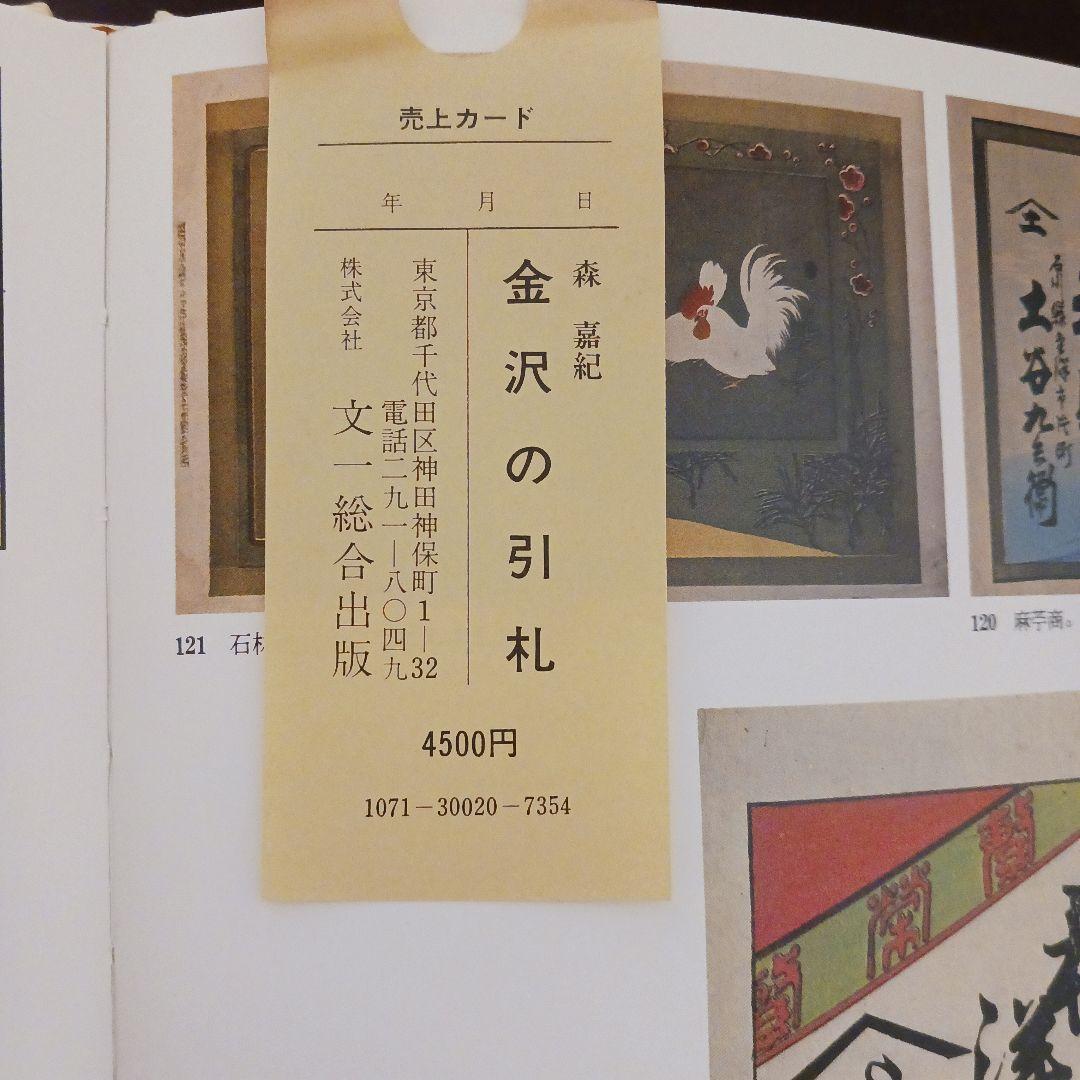 売上カード
年 月 日
森 嘉紀
金沢の引札
東京都千代田区神田神保町1—32
電話二九一—八〇四九
株式会社 文一総合出版
4500円
1071－30020－7354
121 石
120 麻苧商。
土谷九兵衛